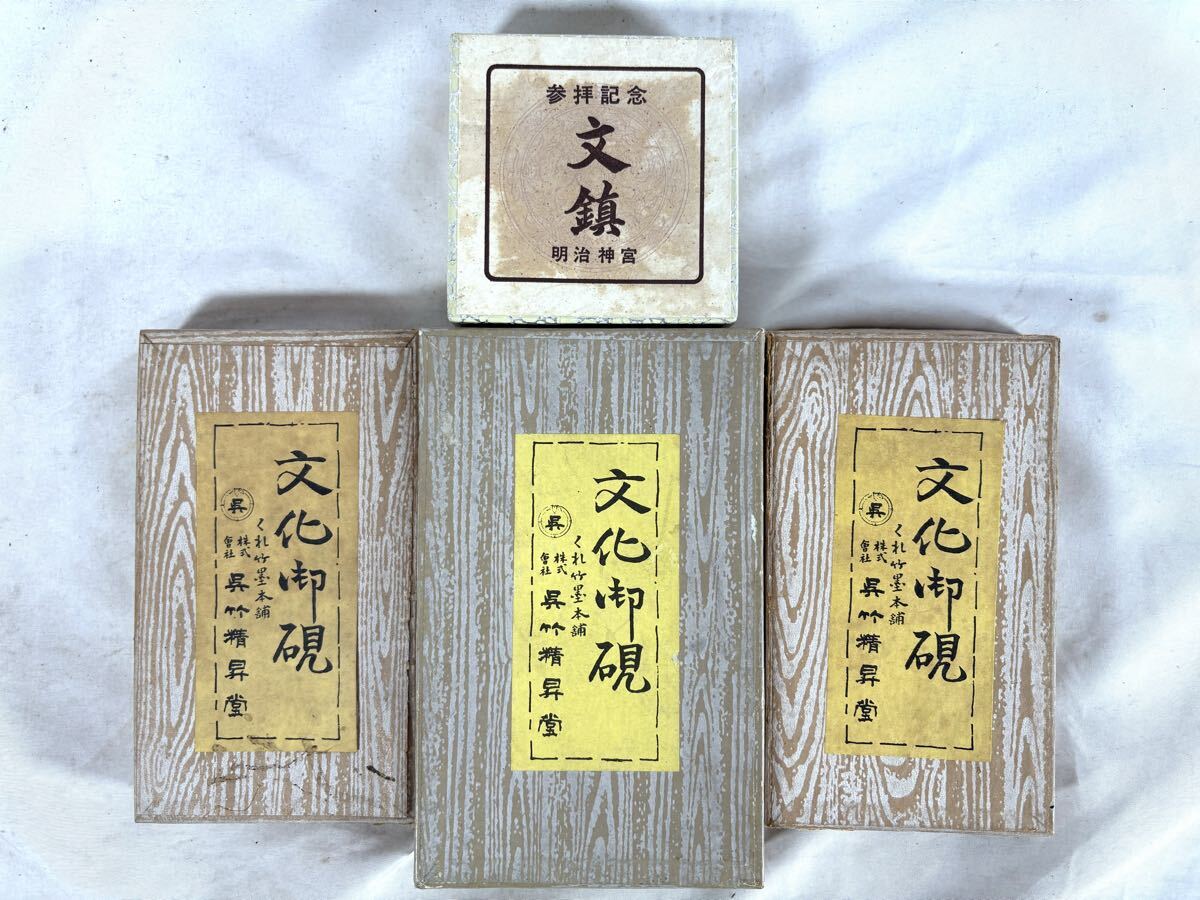 参拝記念
文鎮
明治神宮
文化御硯
くれ竹墨本舗
呉
株式會社
呉竹精昇堂
文化御硯
くれ竹墨本舗
呉
株式會社
呉竹精昇堂
文化御硯
くれ竹墨本舗
呉
株式會社
呉竹精昇堂